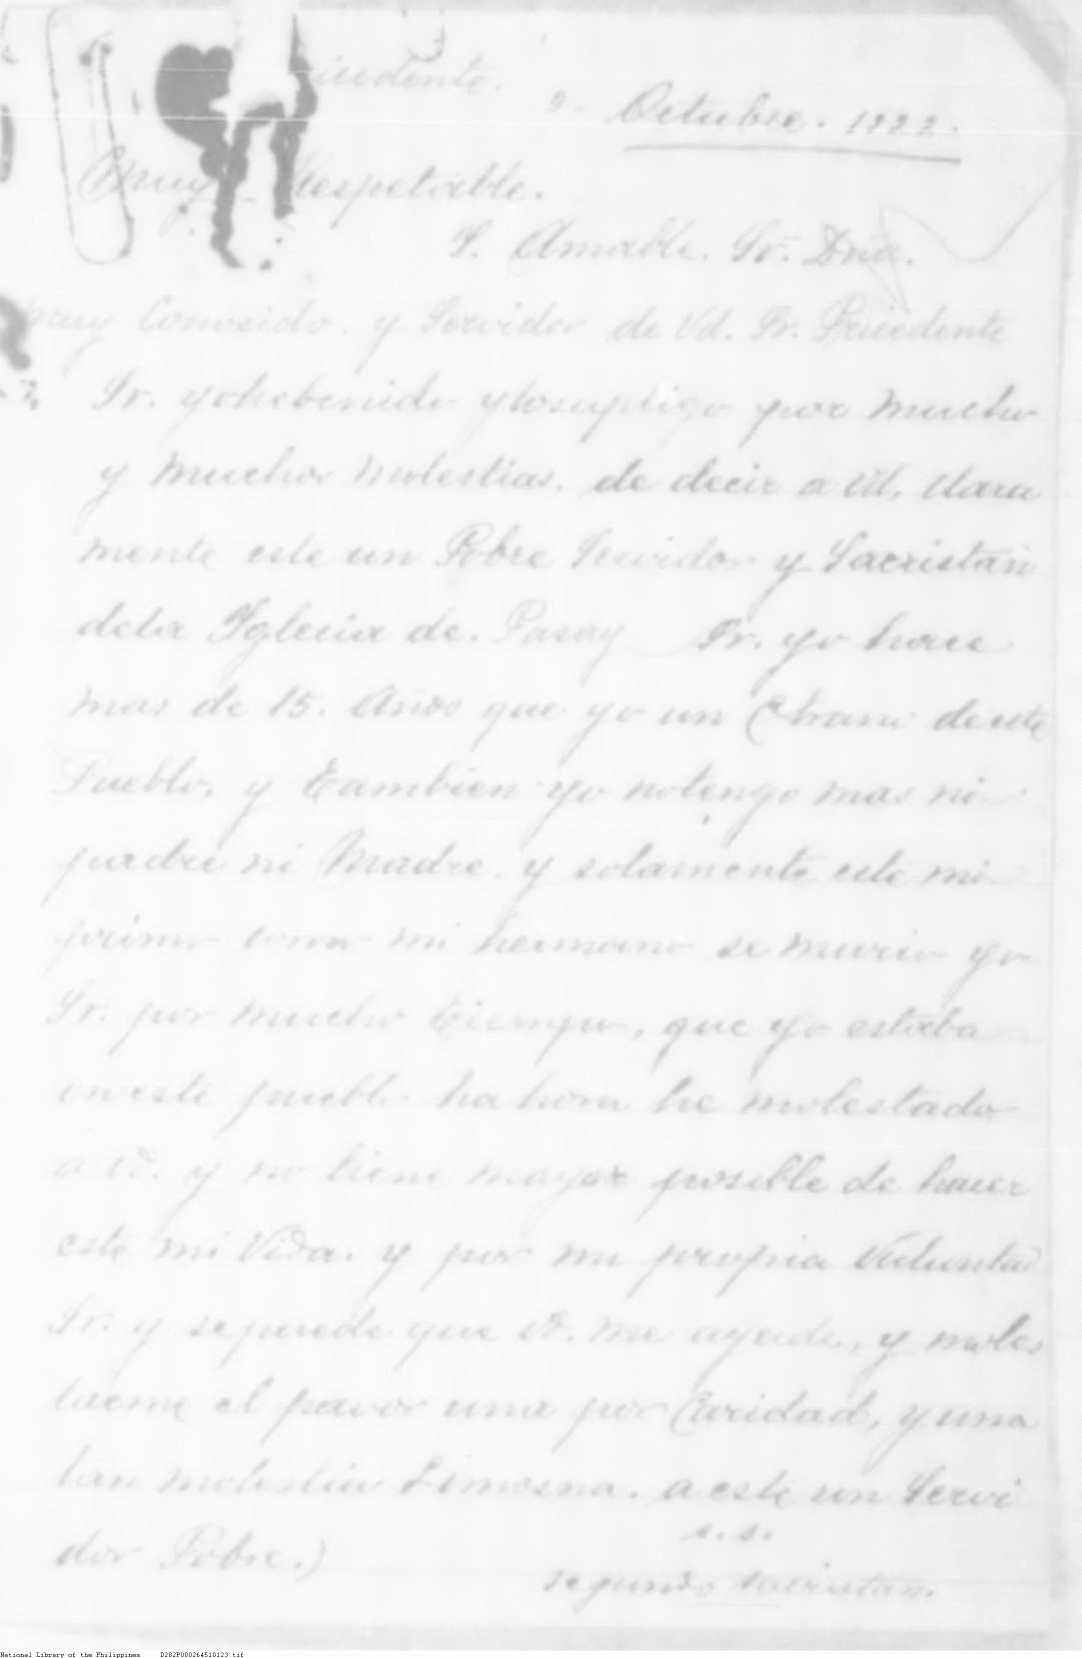 9. Octubre. 1922.
Muy Respetable.
S. Amable. Sr. Dna.
Muy Conosido. y Servidor de Vd. Sr. Precedente
Sr. yohebenido ylosupligo por mucho
y muchos molestias. de decir a Vd. Clara
mente este un Pobre Servidor y Sacristan
dela Yglecia de. Pasay Sr. yo hace
mas de 15. Años que yo un deeste
Pueblo. y Tambien yo notengo mas ni
padre ni Madre. y solamente este mi
primo como mi hermano se murio yo
Sr. por mucho tiempo, que yo estaba
eneste pueblo ha hora he molestado
a Vd. y no tiene mayor posible de hacer
este mi Vida. y por mi propia Voluntad
Sr. y sepuede que Vd. me ayude, y moles
tarme el favor una por Caridad, y una
tan molestia Limosna. a este un Servi
dor Pobre.)
s. s.
segundo sacristan.
National Library of the Philippines D282P000264510123.tif